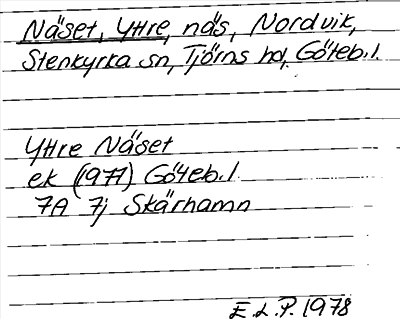 Näset, Yttre, näs, Nordvik,
Stenkyrka sn, Tjörns hd, Göteb. l.
Yttre Näset
ek (1977) Göteb. l
7A 7j Skärhamn
E.L.P. 1978